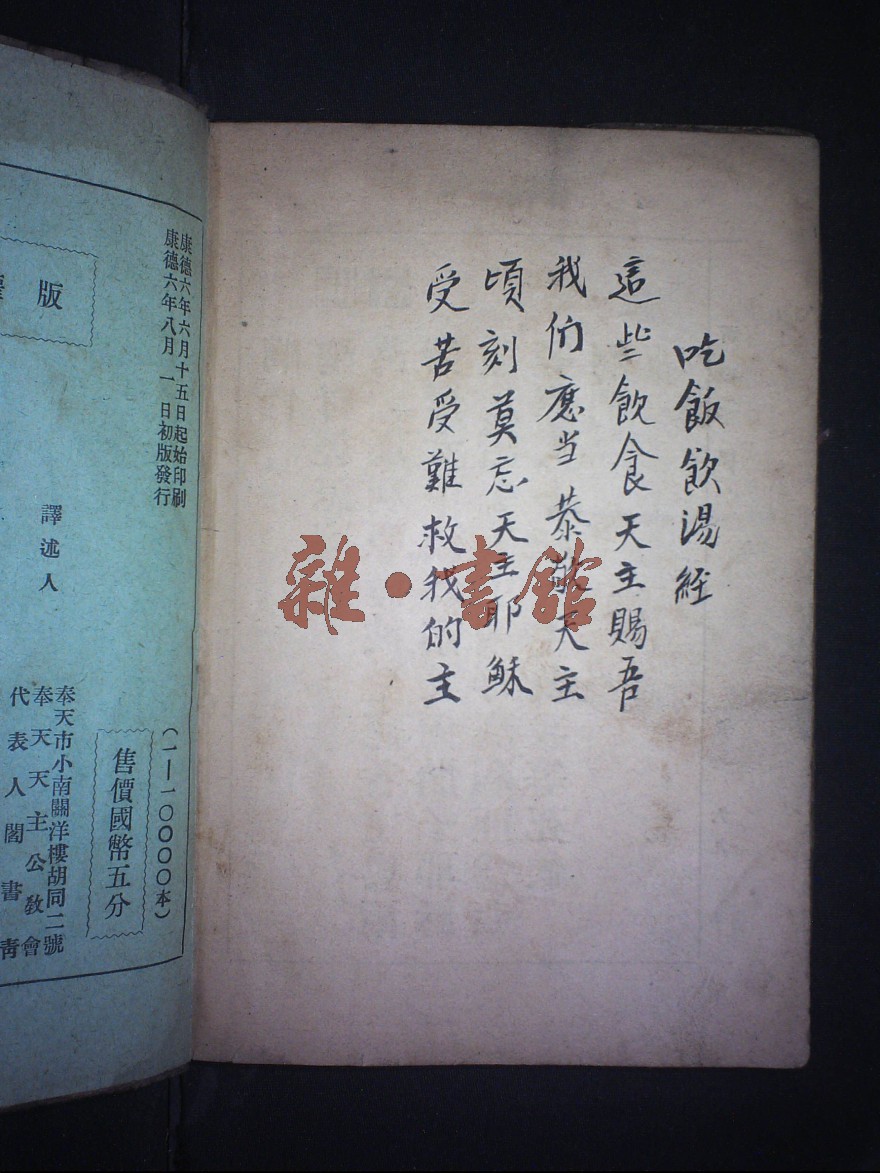 吃飯飲湯経
這些飲食天主賜吾
我们應当恭敬天主
頃刻莫忘天主耶穌
受苦受難救我的主
雜·書館
康德六年六月十五日起始印刷
康德六年八月一日初版發行
(一—一〇〇〇〇本)
售價國幣五分
版
譯述人
奉天市小南關洋樓胡同二號
奉天天主公教會
代表人閻書靑